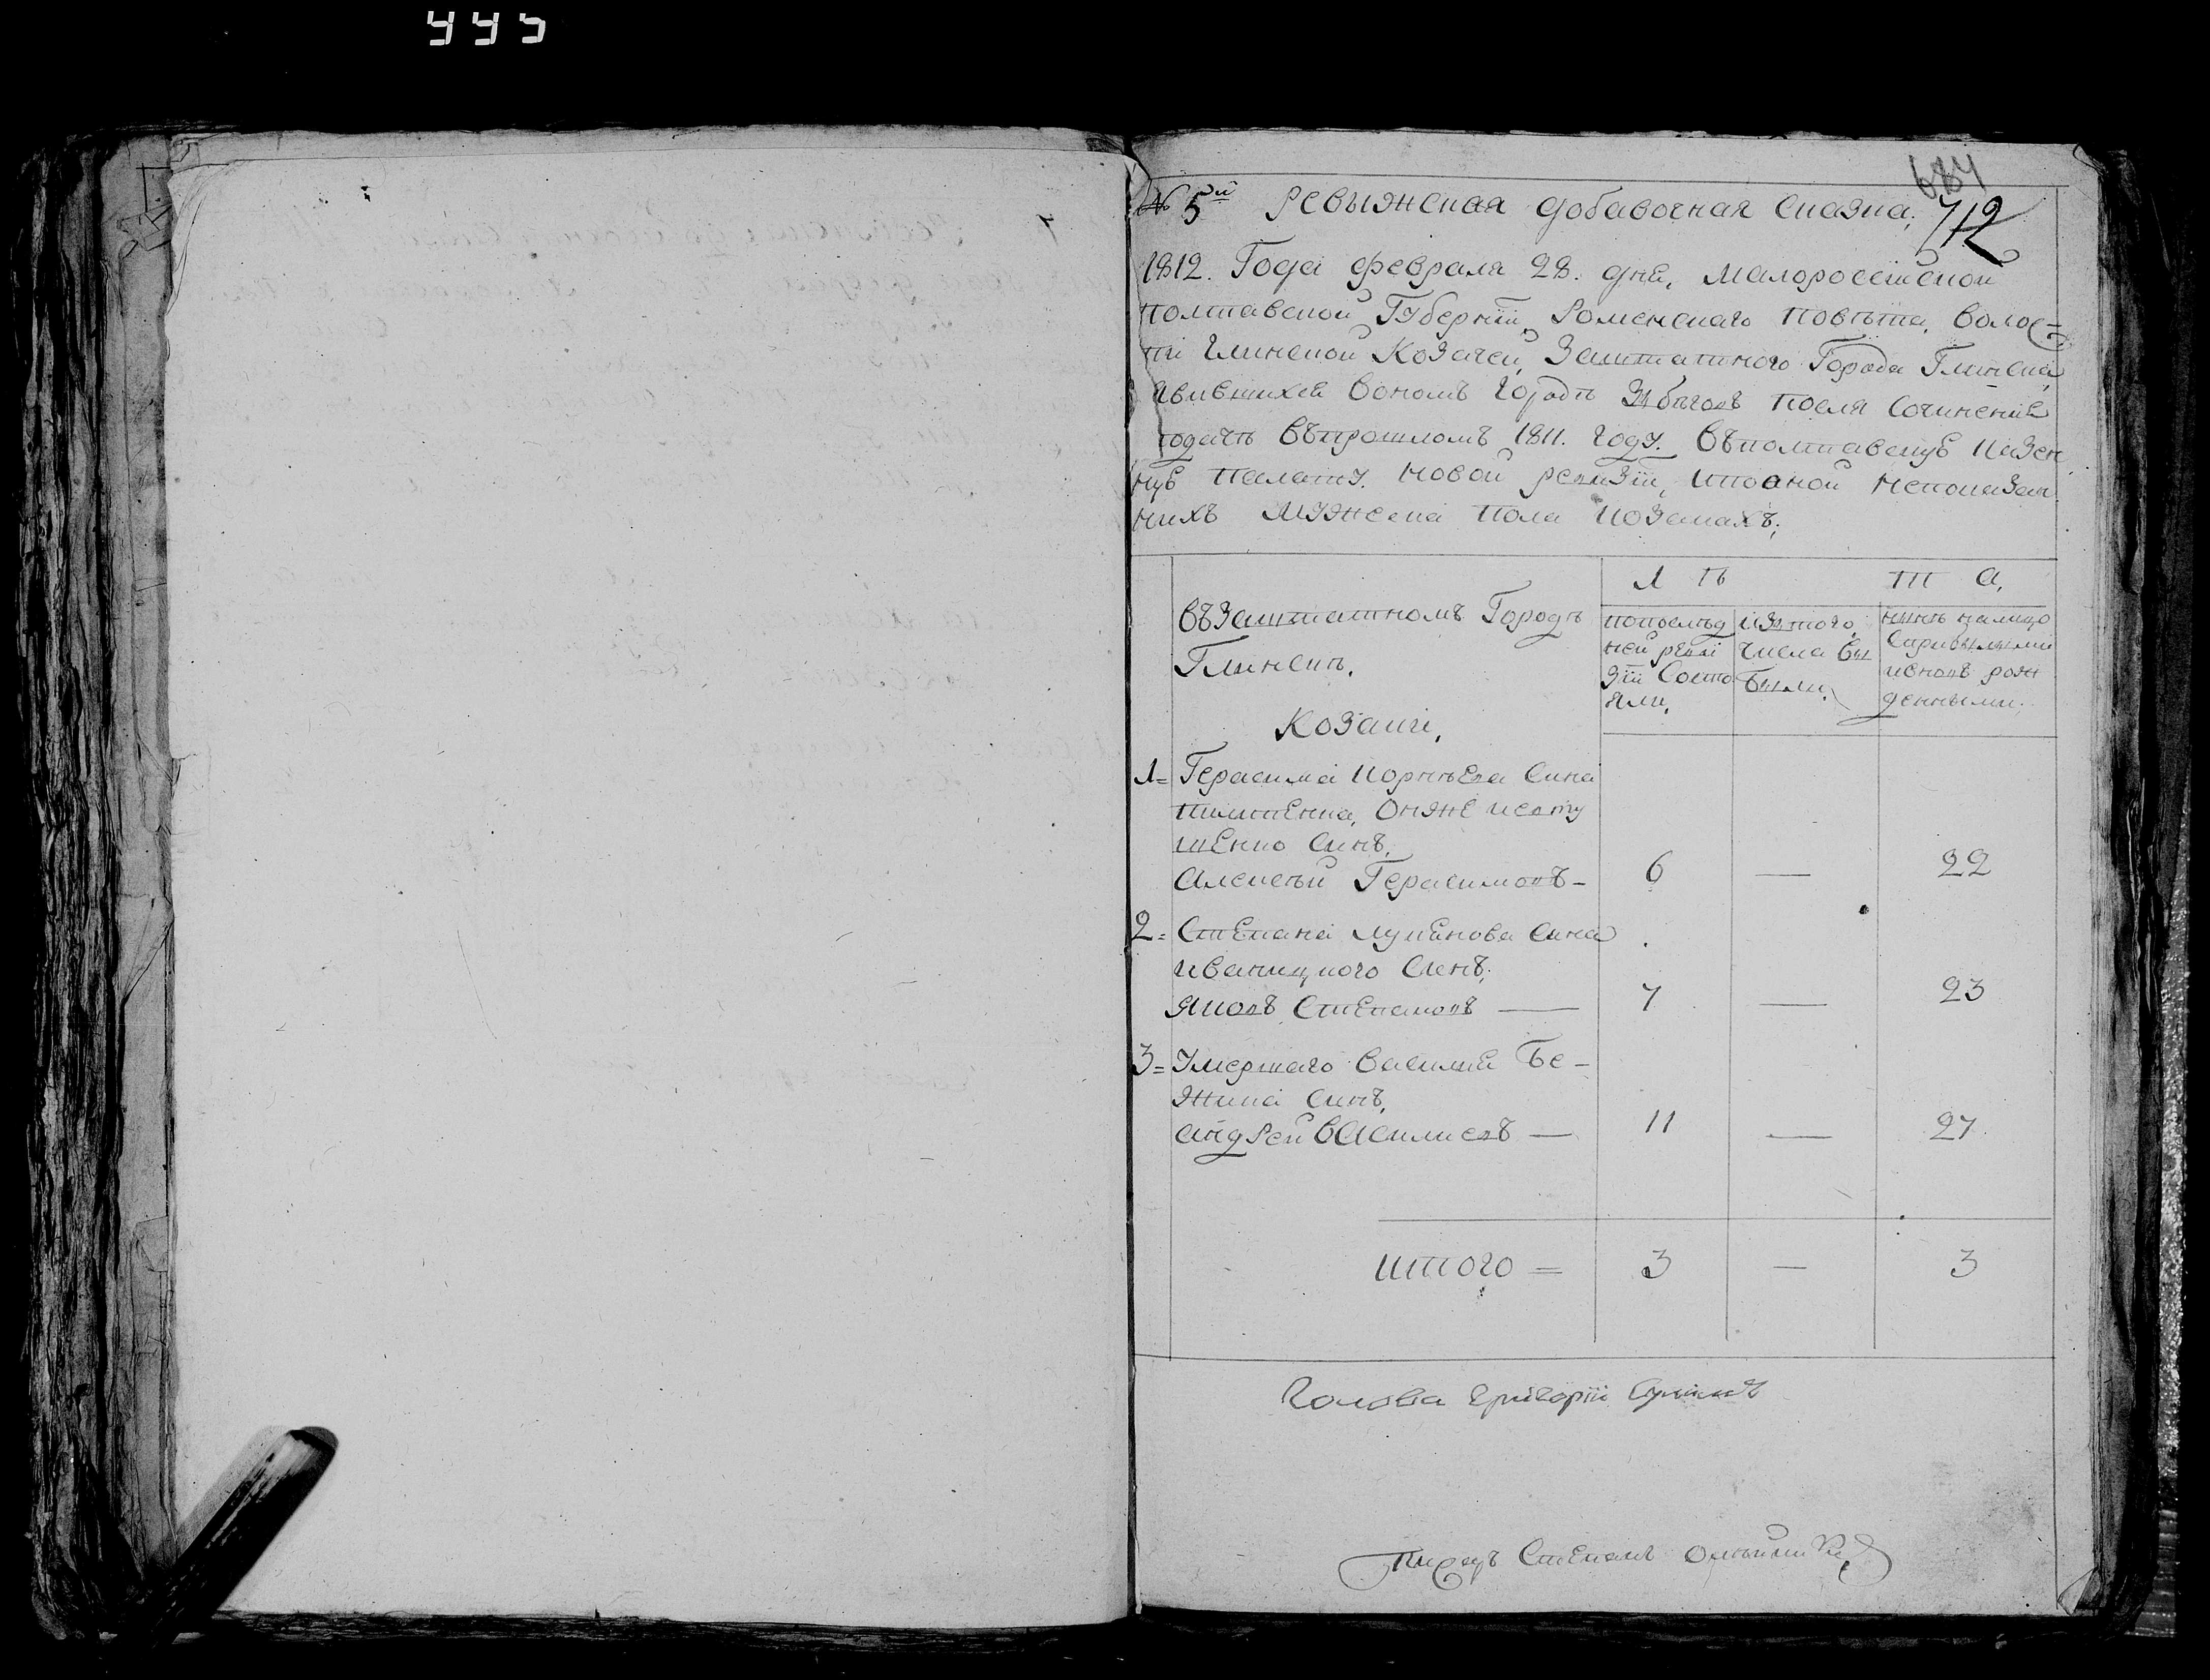 445
684
№ 5й Ревыжская добавочная сказка;
712
1812. Года февраля 28. дня, Малоросѣйской
полтавской Губернїи, Роменскаго повѣта, волос-
ти глинской Козачей, Заштатного Города Глинска,
явившихся вономъ городѣ Збѣговъ посля сочинения
подачѣ въпрошломъ 1811. году. въполтавскую казен
ную палату. новой ревизїи, ипооной непоказан
нихъ мужска пола козакахъ;
Л Ѣ Т А,
въЗаштатномъ Городѣ
Глинскѣ.
попослѣд
ней реви
зїи Состо
яли,
изтого
числа вы
были,
нынѣ налицо
сприбылыми
ивновъ рож
денными.
Козаки,
1= Герасима Корнѣева сина
онже
шенко синъ,
Алексѣй Герасимовъ - 6 — 22
2= Степана Лукянова сина
иваницкого синъ,
Яковъ Степановъ — 7 — 23
3= Умершаго василия Бе-
жика синъ,
андрей василиевъ — 11 — 27
итого = 3 — 3
Голова Григорїй
писарь Степанъ